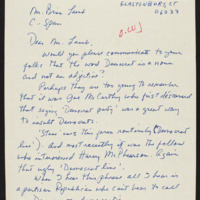 GLASTONBURY CT
06033
Mr. Brian Lamb
C-Span
Dear Mr. Lamb,
Would you please communicate to your
folks that the word Democrat is a noun
and not an adjective?
Perhaps they are too young to remember
that it was Joe McCarthy who first discovered
that saying "Democrat party" was a great way
to insult Democrats.
"Stan" was this year routinely ("Democrat
this"). And most recently it was the fellow
who interviewed Harry McPherson. Again
that ugly "Democrat this".
When I hear this phrase all I hear is
a partisan Republican who can't bear to call